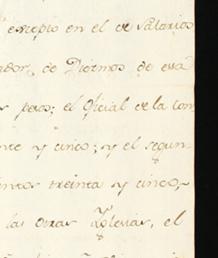 excepto en el de Salarios
ador, de Diezmos de esta
pesos; el Oficial de la Con
nte y cinco; y el segun
entos treinta y cinco,
las otras Yglesias, el